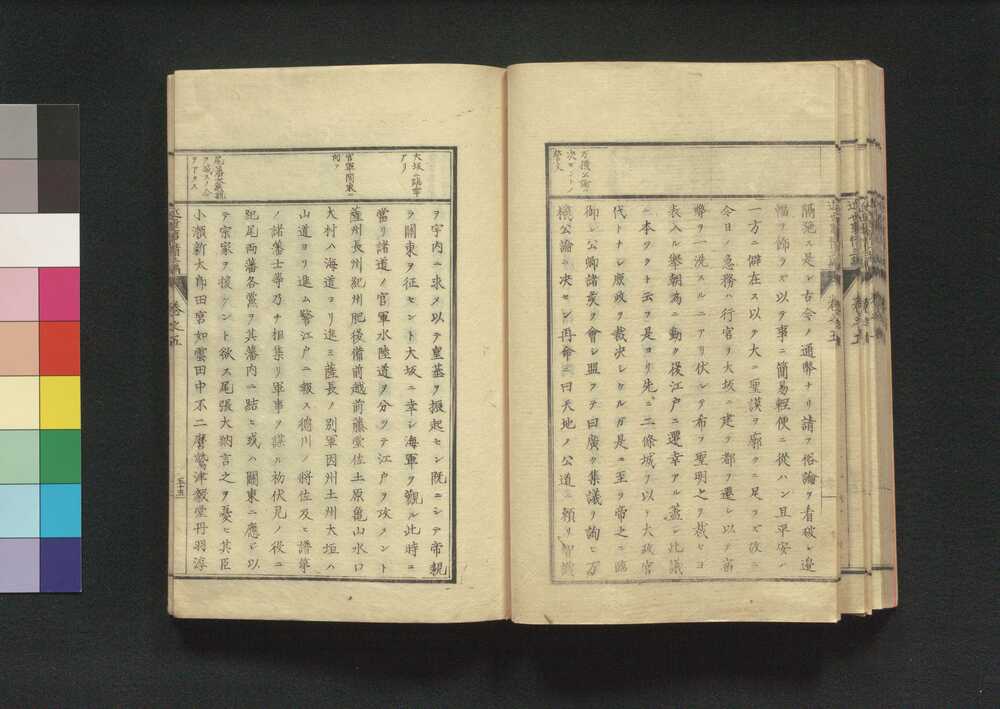 萬機公論ニ
決セントノ
誓文
隔弛ス是レ古今ノ通弊ナリ請フ俗論ヲ看破シ邊
幅ヲ飾ラズ以ヲ事ニ簡易輕便ニ從ハン且平安ハ
一方ニ僻在ス以ヲ大ニ聖謨ヲ廓クニ足ラズ故ニ
今日ノ急務ハ行宮ヲ大坂ニ建テ都ヲ遷シ以テ舊
弊ヲ一洗スルニアリ伏シテ希フ聖明之ヲ裁セヨ
表入ル擧朝為ニ動ク後江戸ニ還幸アル蓋シ此議
ニ本ツクト云フ是ヨリ先ニ二條城ヲ以テ大政官
代トナシ庶政ヲ裁決シケルガ是ニ至ヲ帝之ニ臨
御シ公卿諸矦ヲ會シ盟ヲテ曰廣ク集議ヲ詢ヒ万
機公論ニ决セン再命ニ曰天地ノ公道ニ頼リ智識
近世事情
巻之五
大坂ニ臨幸
アリ
官軍関東ニ
向フ
ヲ宇内ニ求メ以テ皇基ヲ振起セン既ニシテ帝親
ヲ關東ヲ征セント大坂ニ幸シ海軍ヲ觀ル此時ニ
當リ諸道ノ官軍水陸道ヲ分ツテ江戸ヲ攻メント
薩州長州紀州肥後備前越前藤堂佐土原亀山水口
大村ハ海道ヨリ進ミ薩長ノ別軍因州土州大垣ハ
山道ヨリ進ム警江戸ニ報ス徳川ノ將佐及ヒ譜第
ノ諸藩士等乃チ相集リ軍事ヲ謀ル初伏見ノ役ニ
紀尾両藩各黨ヲ其藩内ニ結ヒ或ハ關東ニ應シ以
テ宗家ヲ援ケント欲ス尾張大納言之ヲ憂ヒ其臣
小瀬新太郎田宮如雲田中不二麿鷲津毅堂丹羽淳
近世事情
巻之五
五十五